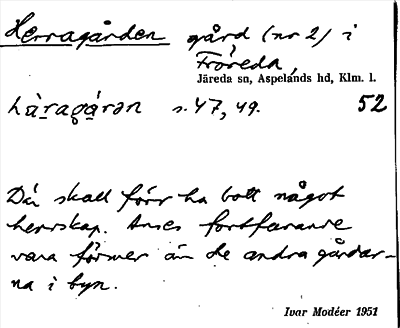 Herragården gård (nr 2) i
Fröreda,
Järeda sn, Aspelands hd, Klm. l.
s. 47, 49. 52
Där skall förr ha bott något
herrskap. Anses fortfarande
vara förmer än de andra gårdar-
na i byn.
Ivar Modéer 1951